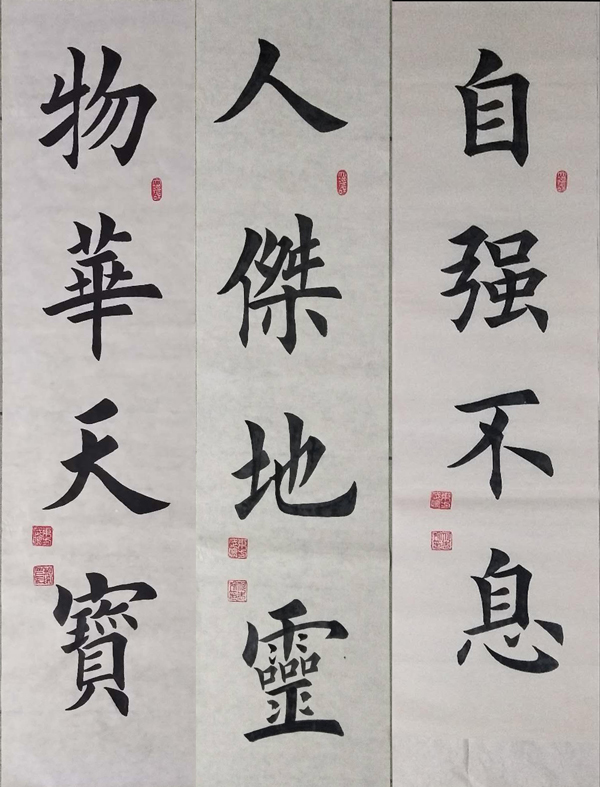 自强不息
人傑地靈
物華天寶